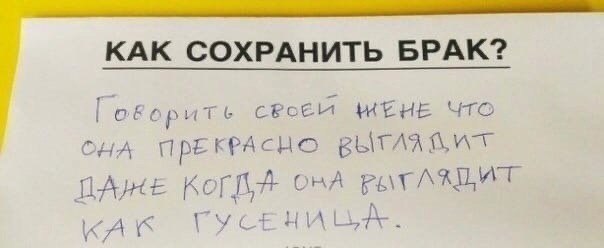 КАК СОХРАНИТЬ БРАК?
ГОВОРИТЬ СВОЕЙ ЖЕНЕ ЧТО
ОНА ПРЕКРАСНО ВЫГЛЯДИТ
ДАЖЕ КОГДА ОНА ВЫГЛЯДИТ
КАК ГУСЕНИЦА.